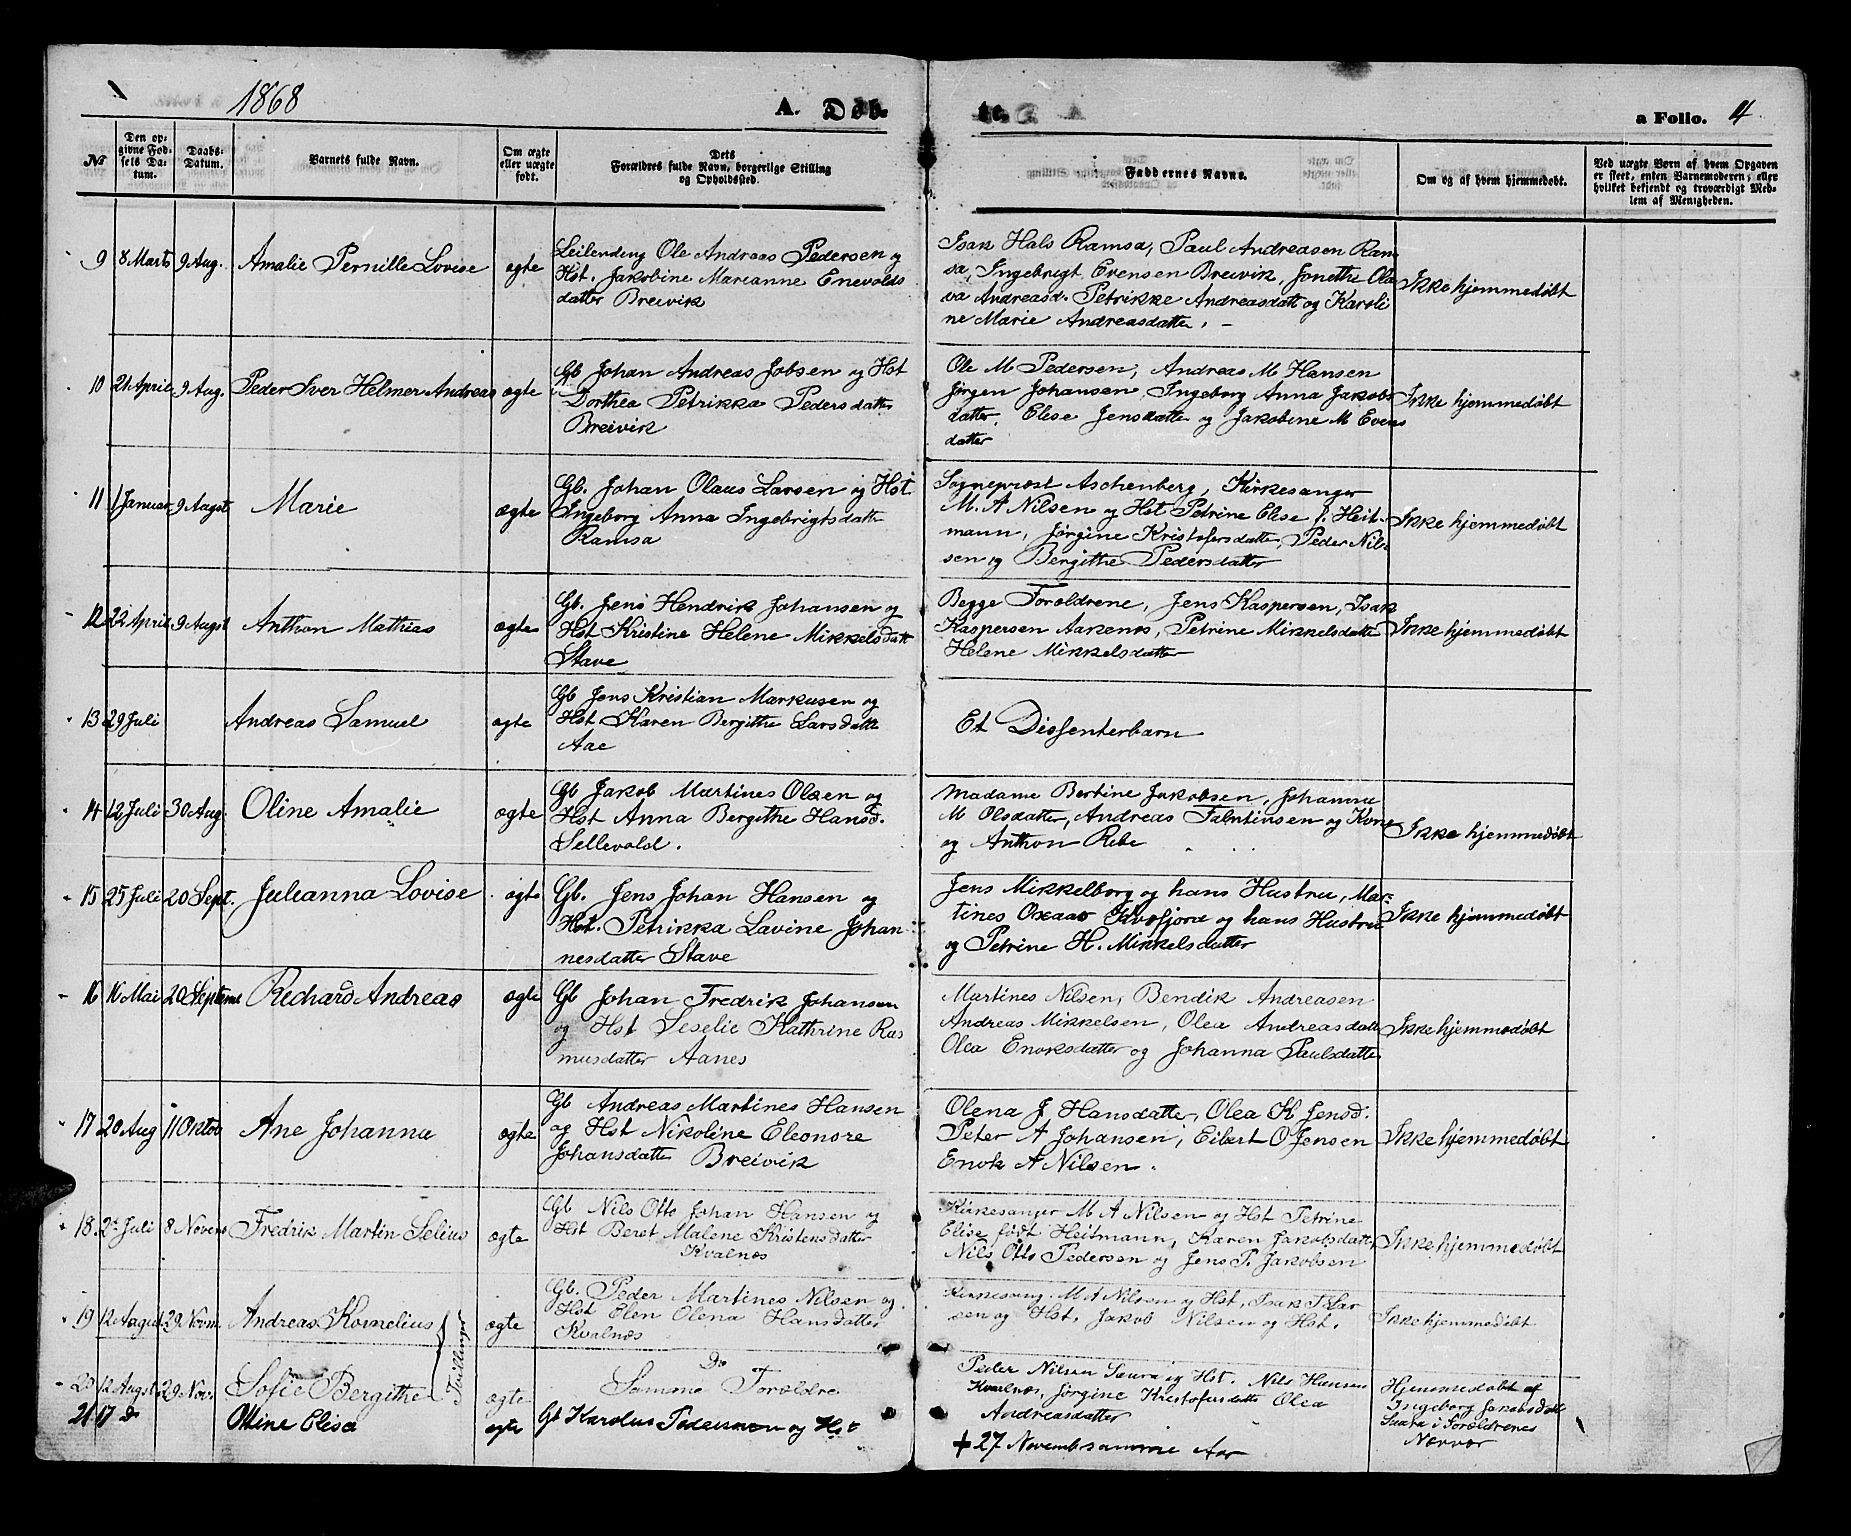 1868
A. Døb-
te.
a Folio. 4
No
Den opgivne Fødsels Datum.
Daabs-Datum.
Barnets fulde Navn.
Om ægte eller uægte født.
Dets Forældres fulde Navn, borgerlige Stilling og Opholdssted.
Faddernes Navne.
Om og af hvem hjemmedøbt.
Ved uægte Børn af hvem Opgaven er skeet, enten Barnemoderen, eller hvilket bekjendt og troværdigt Medlem af Menigheden.
9 8 Marts 9 Aug. Amalie Pernille Lovise ægte
Leilending Ole Andreas Pedersen og
Hst. Jakobine Marianne Enevolds
datter Breivik
Isak Hals Ramsa, Paul Andreasen Ram
sa, Ingebrigt Evensen Breivik, Jonetha Ola
va Andreasd. Petrikke Andreasdatt og Karoli
ne Marie Andreasdatter. –
Ikke hjemmedøbt
10 21 April 9 Aug. Peder Iver Helmer Andreas ægte
Gb Johan Andreas Jobsen og Hst
Dorthea Petrikka Pedersdatter
Breivik
Ole M Pedersen, Andreas M Hansen
Jørgen Johansen, Ingeborg Anna Jakobs
datter, Elise Jensdatter og Jakobine M Evens
datter
Ikke hjemmedøbt
11 1 Januar 9 Augst Marie ægte
Gb. Johan Olaus Larsen og Hst.
Ingeborg Anna Ingebrigtsdatter
Ramsa
Sogneprost Aschenberg, Kirkesanger
M. A Nilsen og Hst Petrine Elise f. Heit-
mann, Jørgine Kristofersdatter, Peder Nil
sen og Bergithe Pedersdatter
Ikke hjemmedøbt
12 22 April 9 Augst Anthon Mathias ægte
Gb. Jens Hendrik Johansen og
Hst Kristine Helene Mikkelsdatt
Stave
Begge Forældrene, Jens Kaspersen, Isak
Kaspersen Aakenes, Petrine Mikkelsdatter
Helene Mikkelsdatter
Ikke hjemmedøbt
13 29 Juli Andreas Samuel ægte
Gb Jens Kristian Markusen og
Hst Karen Bergithe Larsdatter
Aae
Et Dissenterbarn
14 12 Juli 30 Aug. Oline Amalie ægte
Gb Jakob Martines Olsen og
Hst Anna Bergithe Hansd.
Sellevold.
Madame Bertine Jakobsen, Johanna
M Olsdatter, Andreas Falntinsen og Kone
og Anthon Rebe
Ikke hjemmedøbt
15 25 Juli 20 Sept. Julianna Lovise ægte
Gb. Jens Johan Hansen og
Hst. Petrikka Lavine Johan
nesdatter Stave
Jens Mikkelborg og hans Hustru, Mar-
tines Oxaas Kvæfjord og hans Hustru
og Petrine H. Mikkelsdatter
Ikke hjemmedøbt
16 16 Mai 20 Septemb Richard Andreas ægte
Gb Johan Fredrik Johansen
og Hst Seselie Kathrine Ras
musdatter Aanes
Martines Nilsen, Bendik Andreasen
Andreas Mikkelsen, Olea Andreasdatt
Olea Enoksdatter og Johanna Paulsdatter
Ikke hjemmedøbt
17 20 Aug 11 Oktob Ane Johanna ægte
Gb Andreas Martines Hansen
og Hst Nikoline Eleonore
Johansdatter Breivik
Olena J Hansdatter, Olea K Jensd.
Peter A Johansen, Eibert O Jensen
Enok A Nilsen.
Ikke hjemmedøbt
18. Juli 8 Novem Fredrik Martin Selius ægte
Gb Nils Otto Johan Hansen og
Hst Beret Malene Kristensdatter
Kvalnes
Kirkesanger M A Nilsen og Hst Petrine
Elise født Heitmann, Karen Jakobsdatter
Nils Otto Pedersen og Jens P. Jakobsen
Ikke hjemmedøbt
19 12 August 29 Novm. Andreas Kornelius ægte
Tvillinger
Gb. Peder Martines Nilsen og
Hst Elen Olena Hansdatter
Kvalnes
Kirkesang. M A Nilsen og Hst, Isak T Lar
sen og Hst, Jakob Nilsen og Hst.
Ikke hjemmedøbt
20 12 Augst 29 Nov. Sofie Bergithe ægte
Do
Samme Forældre
Peder Nilsen Saura og Hst. Nils Hansen
Kvalnes, Jørgine Kristofersdatter Olea
Andreasdatter
Hjemmedøbt af
Ingeborg Jakobsdatt
Saura i Forældrenes
Nærvær
21 17 do Oline Elisa ægte
Gb Karolus Pedersen og Hst
+ 27 November samme Aar